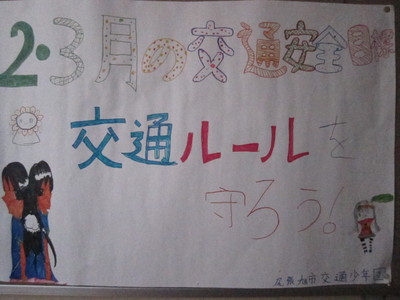 2・3月の交通安全目標
交通ルールを
守ろう!
交通少年団